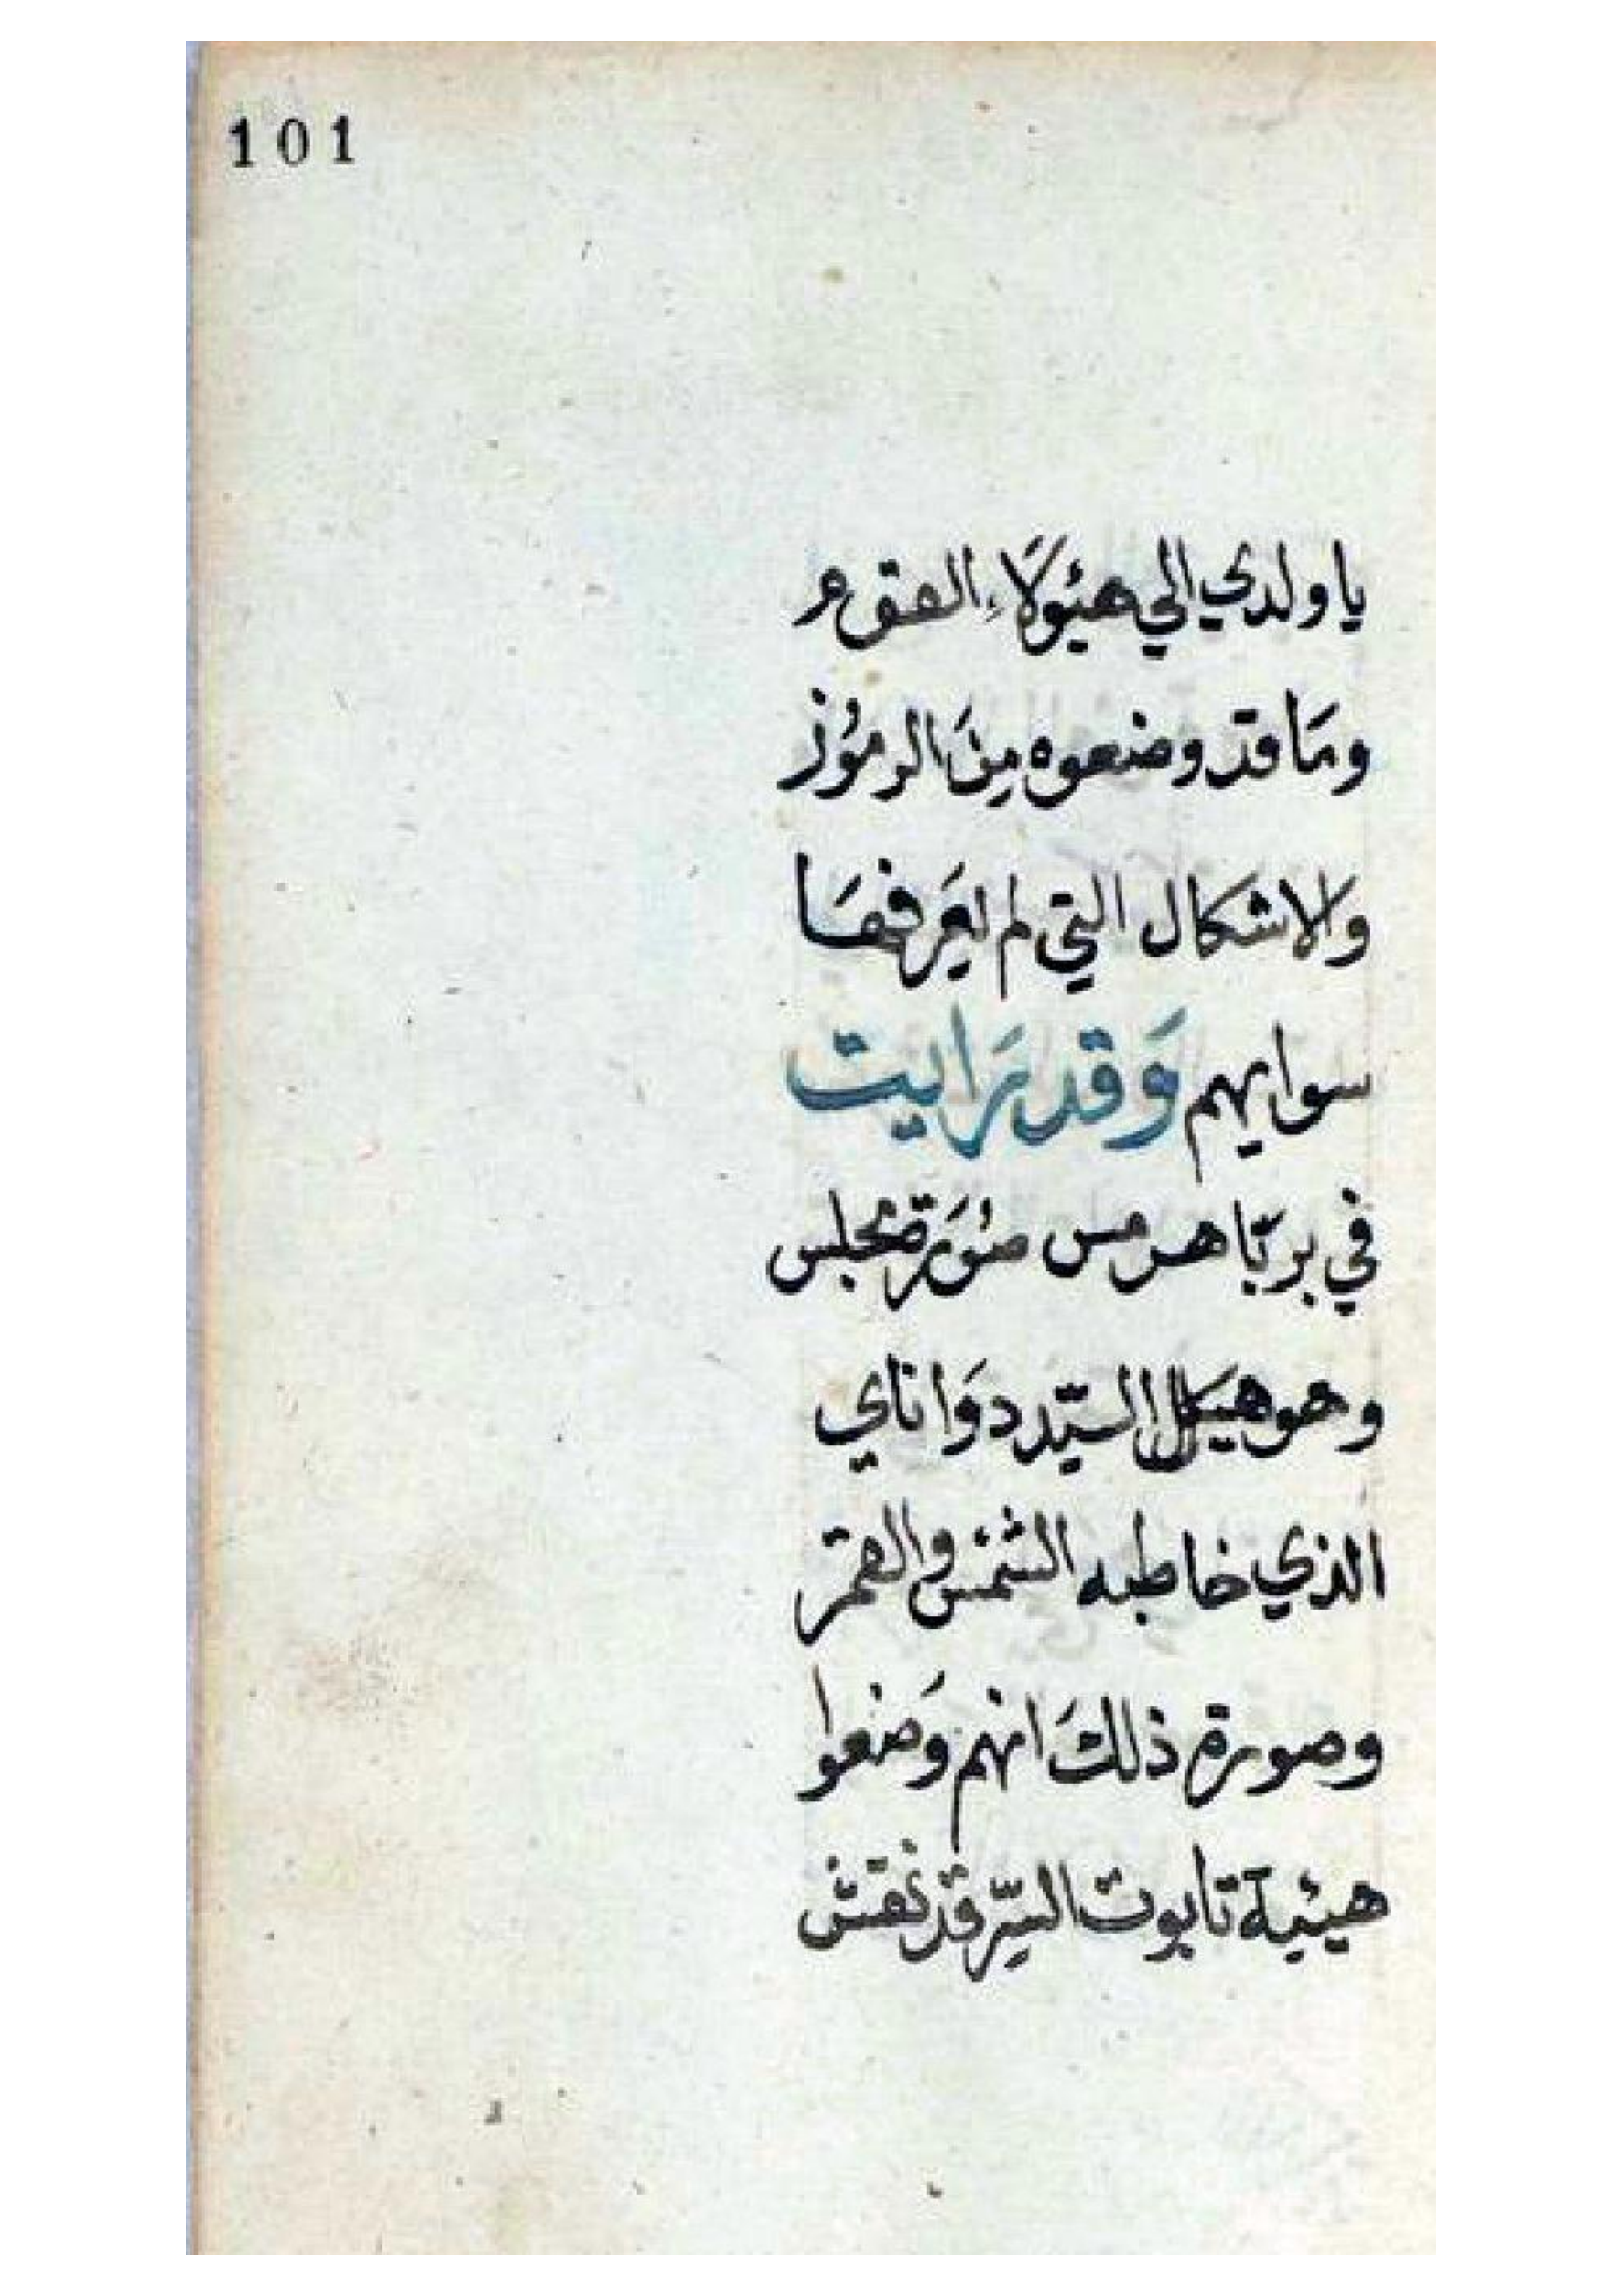 101
يا ولدي الي هيؤلاء القوم
ومَا قد وضعوه مِنَ الرموُز
وَالاشكال التي لم يعَرفهَا
سوايهم وَقد رَايت
في بربّا هرمس صُورَة مجلس
وهو هيكل السيّد دوَاناي
الذي خاطبه الشمس والقمر
وصورة ذلكَ انهم وَضعوا
هيئية تابوت السِّر قد نقش